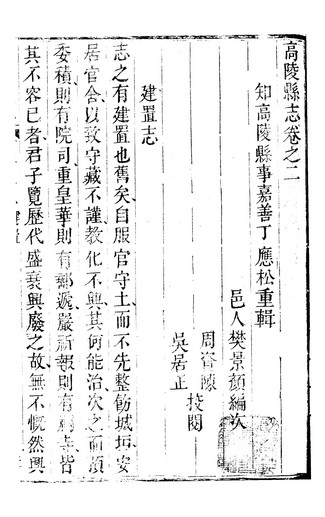 高陵縣志卷之二
知高陵縣事嘉善丁應松重輯
邑人樊景顏編次
周資陳
吳居正
校閱
建置志
志之有建置也舊矣自服官守土而不先整飭城垣安
居官舍以致守藏不謹教化不興其何能治次之而頓
委積則有院司重皇華則有郵遞嚴祈報則有祠寺皆
其不容已者君子覽歷代盛衰興廢之故無不慨然興